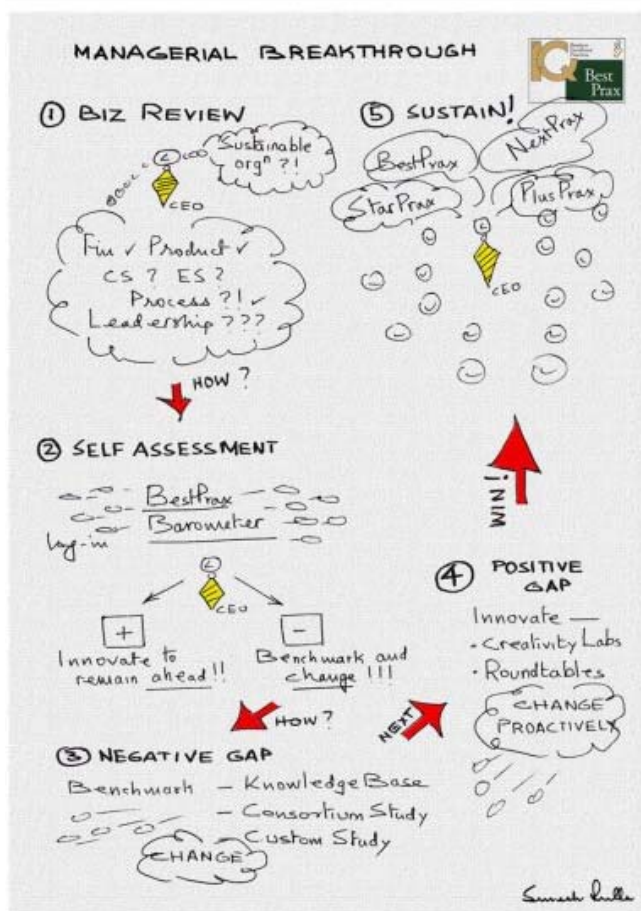 MANAGERIAL BREAKTHROUGH
IQ
Best
Prax
① BIZ REVIEW
Sustainable
orgn ?!
CEO
Fin ✓ Product ✓
CS ? ES ?
Process ?! ✓
Leadership ???
HOW ?
② SELF ASSESSMENT
BestPrax
Barometer
log-in
CEO
+
Innovate to
remain ahead !!
-
Benchmark and
change !!!
HOW ?
③ NEGATIVE GAP
Benchmark — Knowledge Base
— Consortium Study
— Custom Study
CHANGE
NEXT
④ POSITIVE
GAP
Innovate —
• Creativity Labs
• Roundtables
CHANGE
PROACTIVELY
WIN!
⑤ SUSTAIN!
BestPrax
NextPrax
StarPrax
PlusPrax
CEO